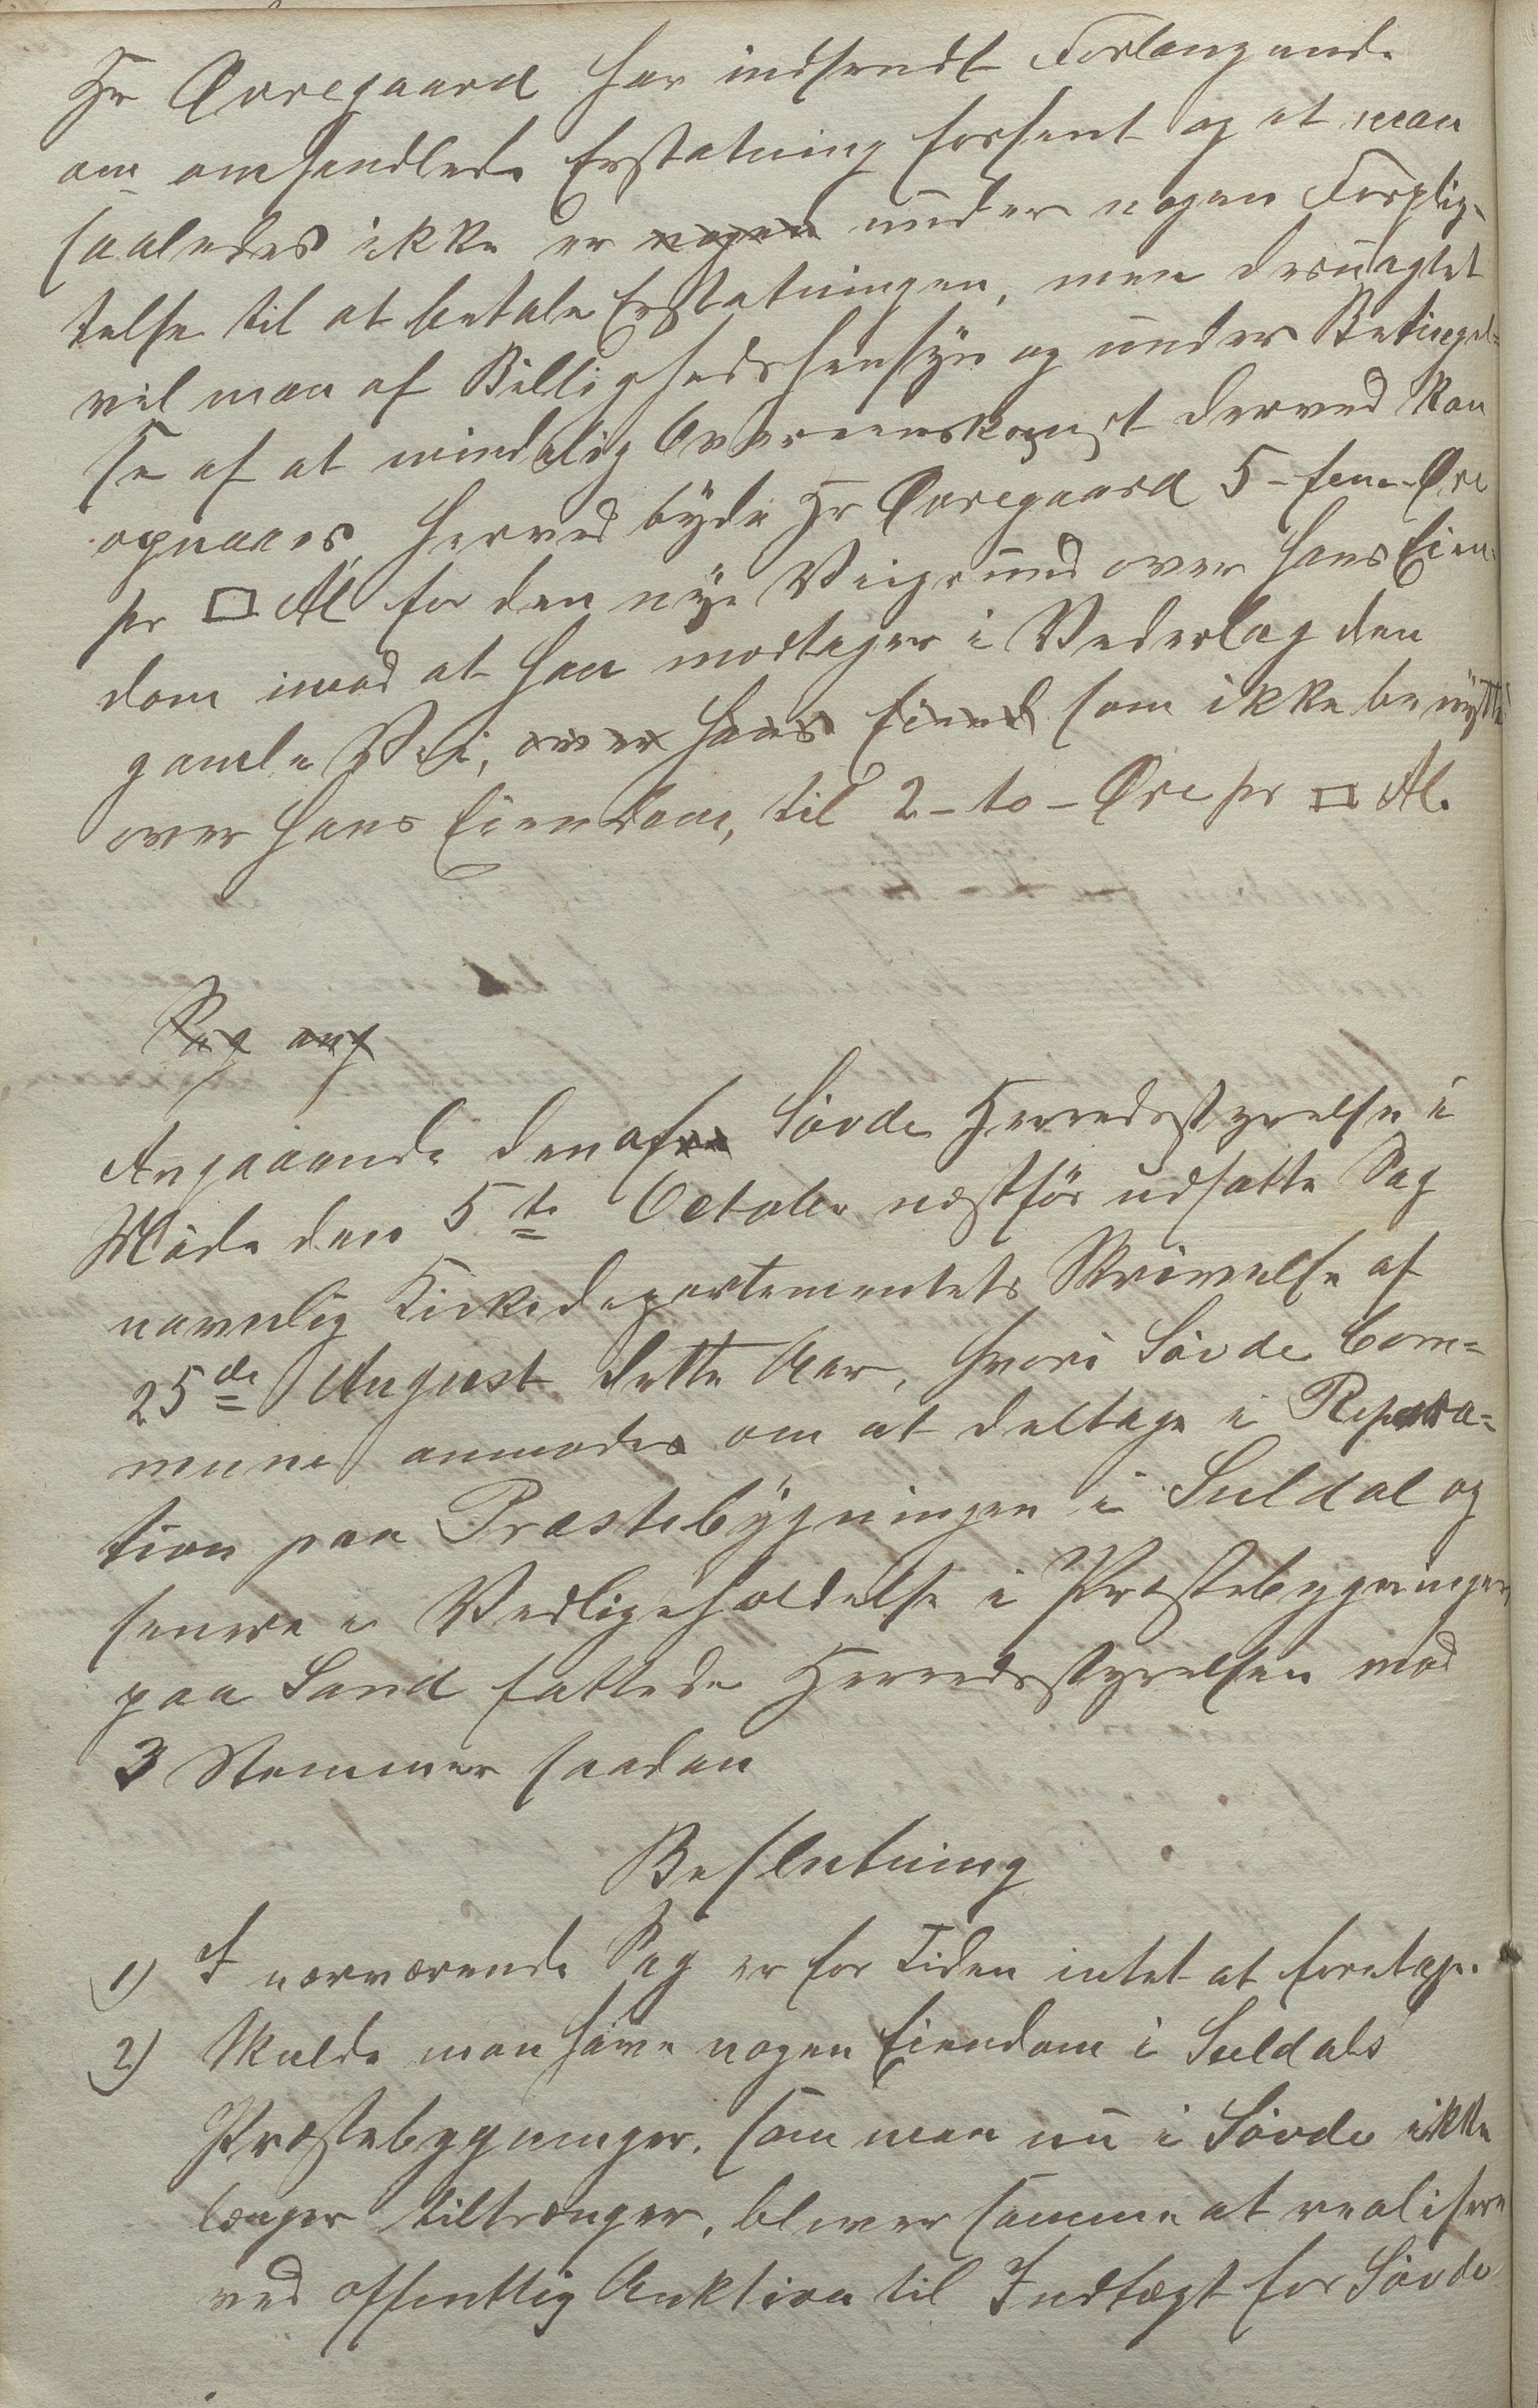 Hr Øvregaard har indsendt Forlangende
om omhandlede Erstatning forsent og at man
saaledes ikke er nogen under nogen Forplig-
telse til at betale Erstatningen, men desuagtet
vil man af Billighedshensyn og under Betingel-
se af at mindelig Overeenskomst derved kan
opnaaes, herved byde Hr Øvregaard 5 - fem - Øre
pr □ Al for den nye Veigrund over hans Eien-
dom imod at han modtager i Vederlag den
gamle Vei, over hans Eiend som ikke benyttes
over hans Eiendom, til 2 - to - Øre pr □ Al.
Sag ang
Angaaende den af Søvde Herredsstyrelse i
Møde den 5te October næstfør udsatte Sag
navnlig Kirkedepartementets Skrivelse af
25de August dette Aar, hvori Søvde Com-
mune anmodes om at deltage i Repara-
tion paa Præstebygningen i Suldal og
senere i Vedligeholdelse i Præstebygningen
paa Sand fattede Herredsstyrelsen mod
3 Stemmer saadan
Beslutning
1) I nærværende Sag er for Tiden intet at foretage.
2) Skulde man have nogen Eiendom i Suldals
Præstebygninger, som man nu i Søvde ikke
længer tiltrænger, bliver samme at realisere
ved offentlig Auktion til Indtægt for Søvde